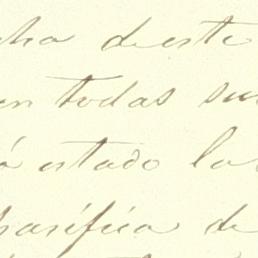 cha deste
en todas sus
á estado la
pacífica de